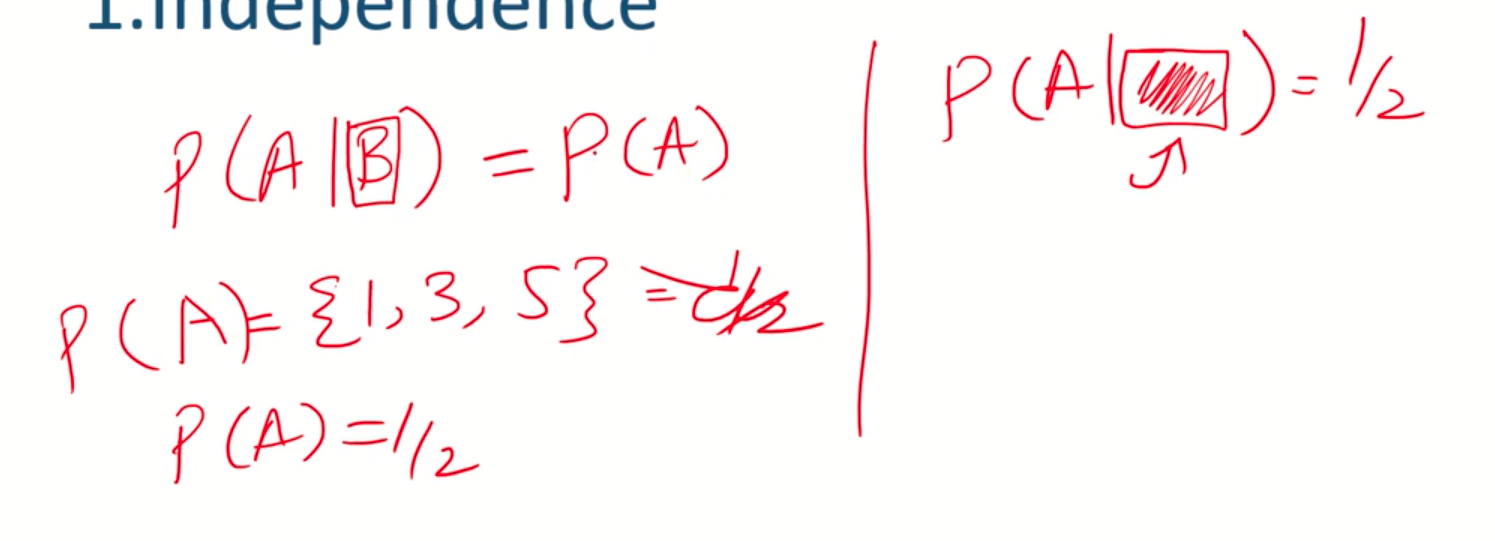 1.Independence
P(A|B) = P(A)
P(A)= {1, 3, 5} = 1/2
P(A)=1/2
P(A| )= 1/2